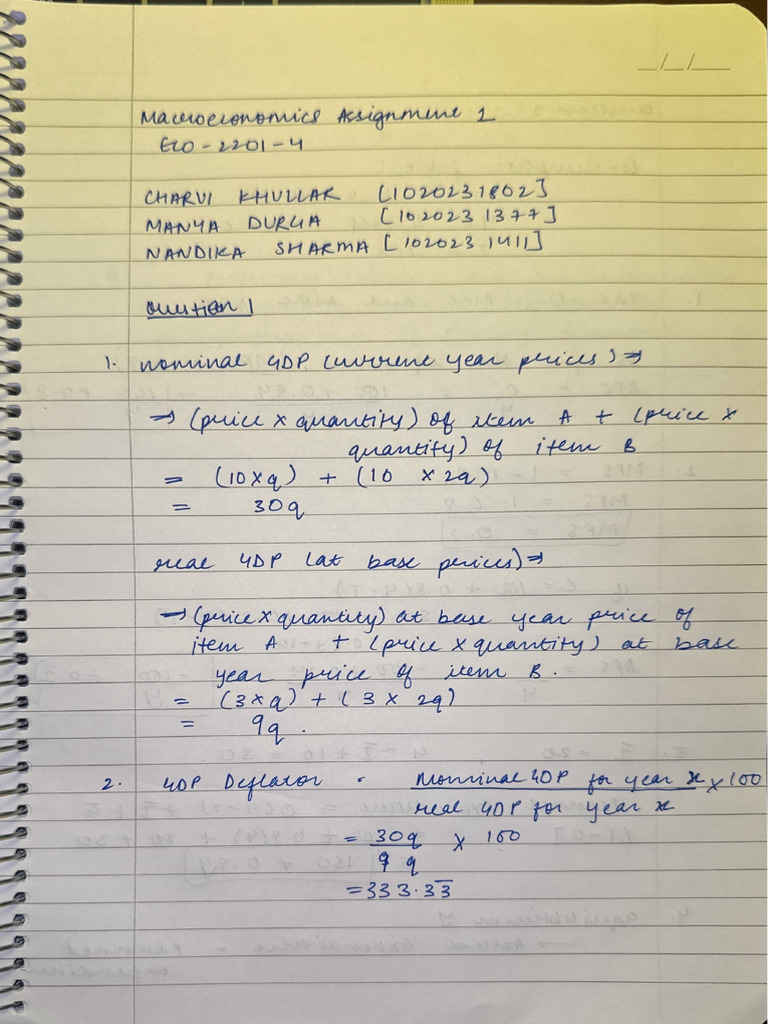 _/_/__
Macroeconomics Assignment 1
ECO-2201-4
CHARVI KHULLAR [1020231802]
MANYA DURGA [1020231377]
NANDIKA SHARMA [1020231411]
Question 1
1. nominal GDP (current year prices) ⇒
→ (price x quantity) of item A + (price x
quantity) of item B
= (10xq) + (10 x 2q)
= 30q
real GDP (at base prices) ⇒
→ (price x quantity) at base year price of
item A + (price x quantity) at base
year price of item B.
= (3xq) + (3 x 2q)
= 9q.
2. GDP Deflator = Nominal GDP for year x x 100
real GDP for year x
= 30q x 100
9q
= 333.33̅